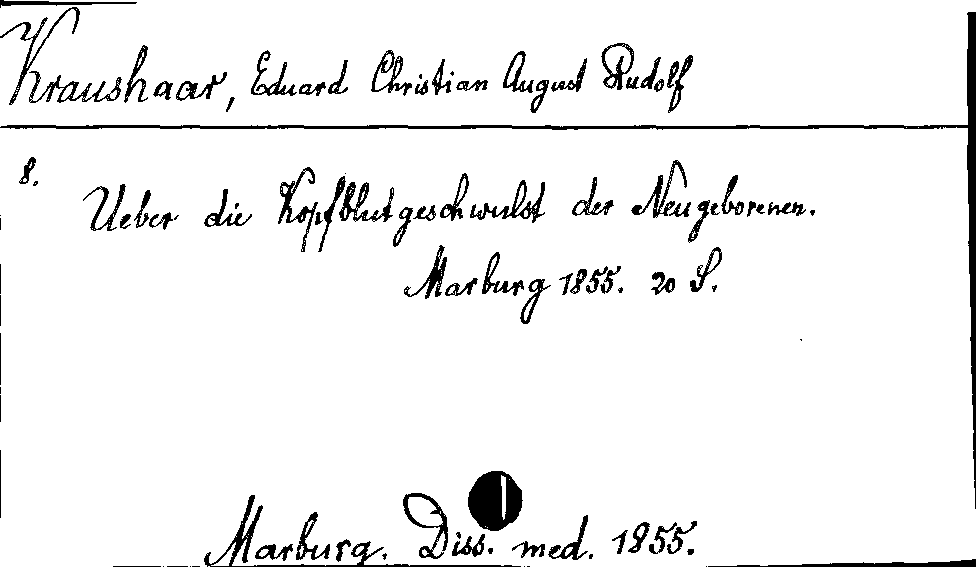 Kraushaar, Eduard Christian August Rudolf
8.
Ueber die Kopfblutgeschwulst der Neugeborenen.
Marburg 1855. 20 S.
Marburg. Diss. med. 1855.